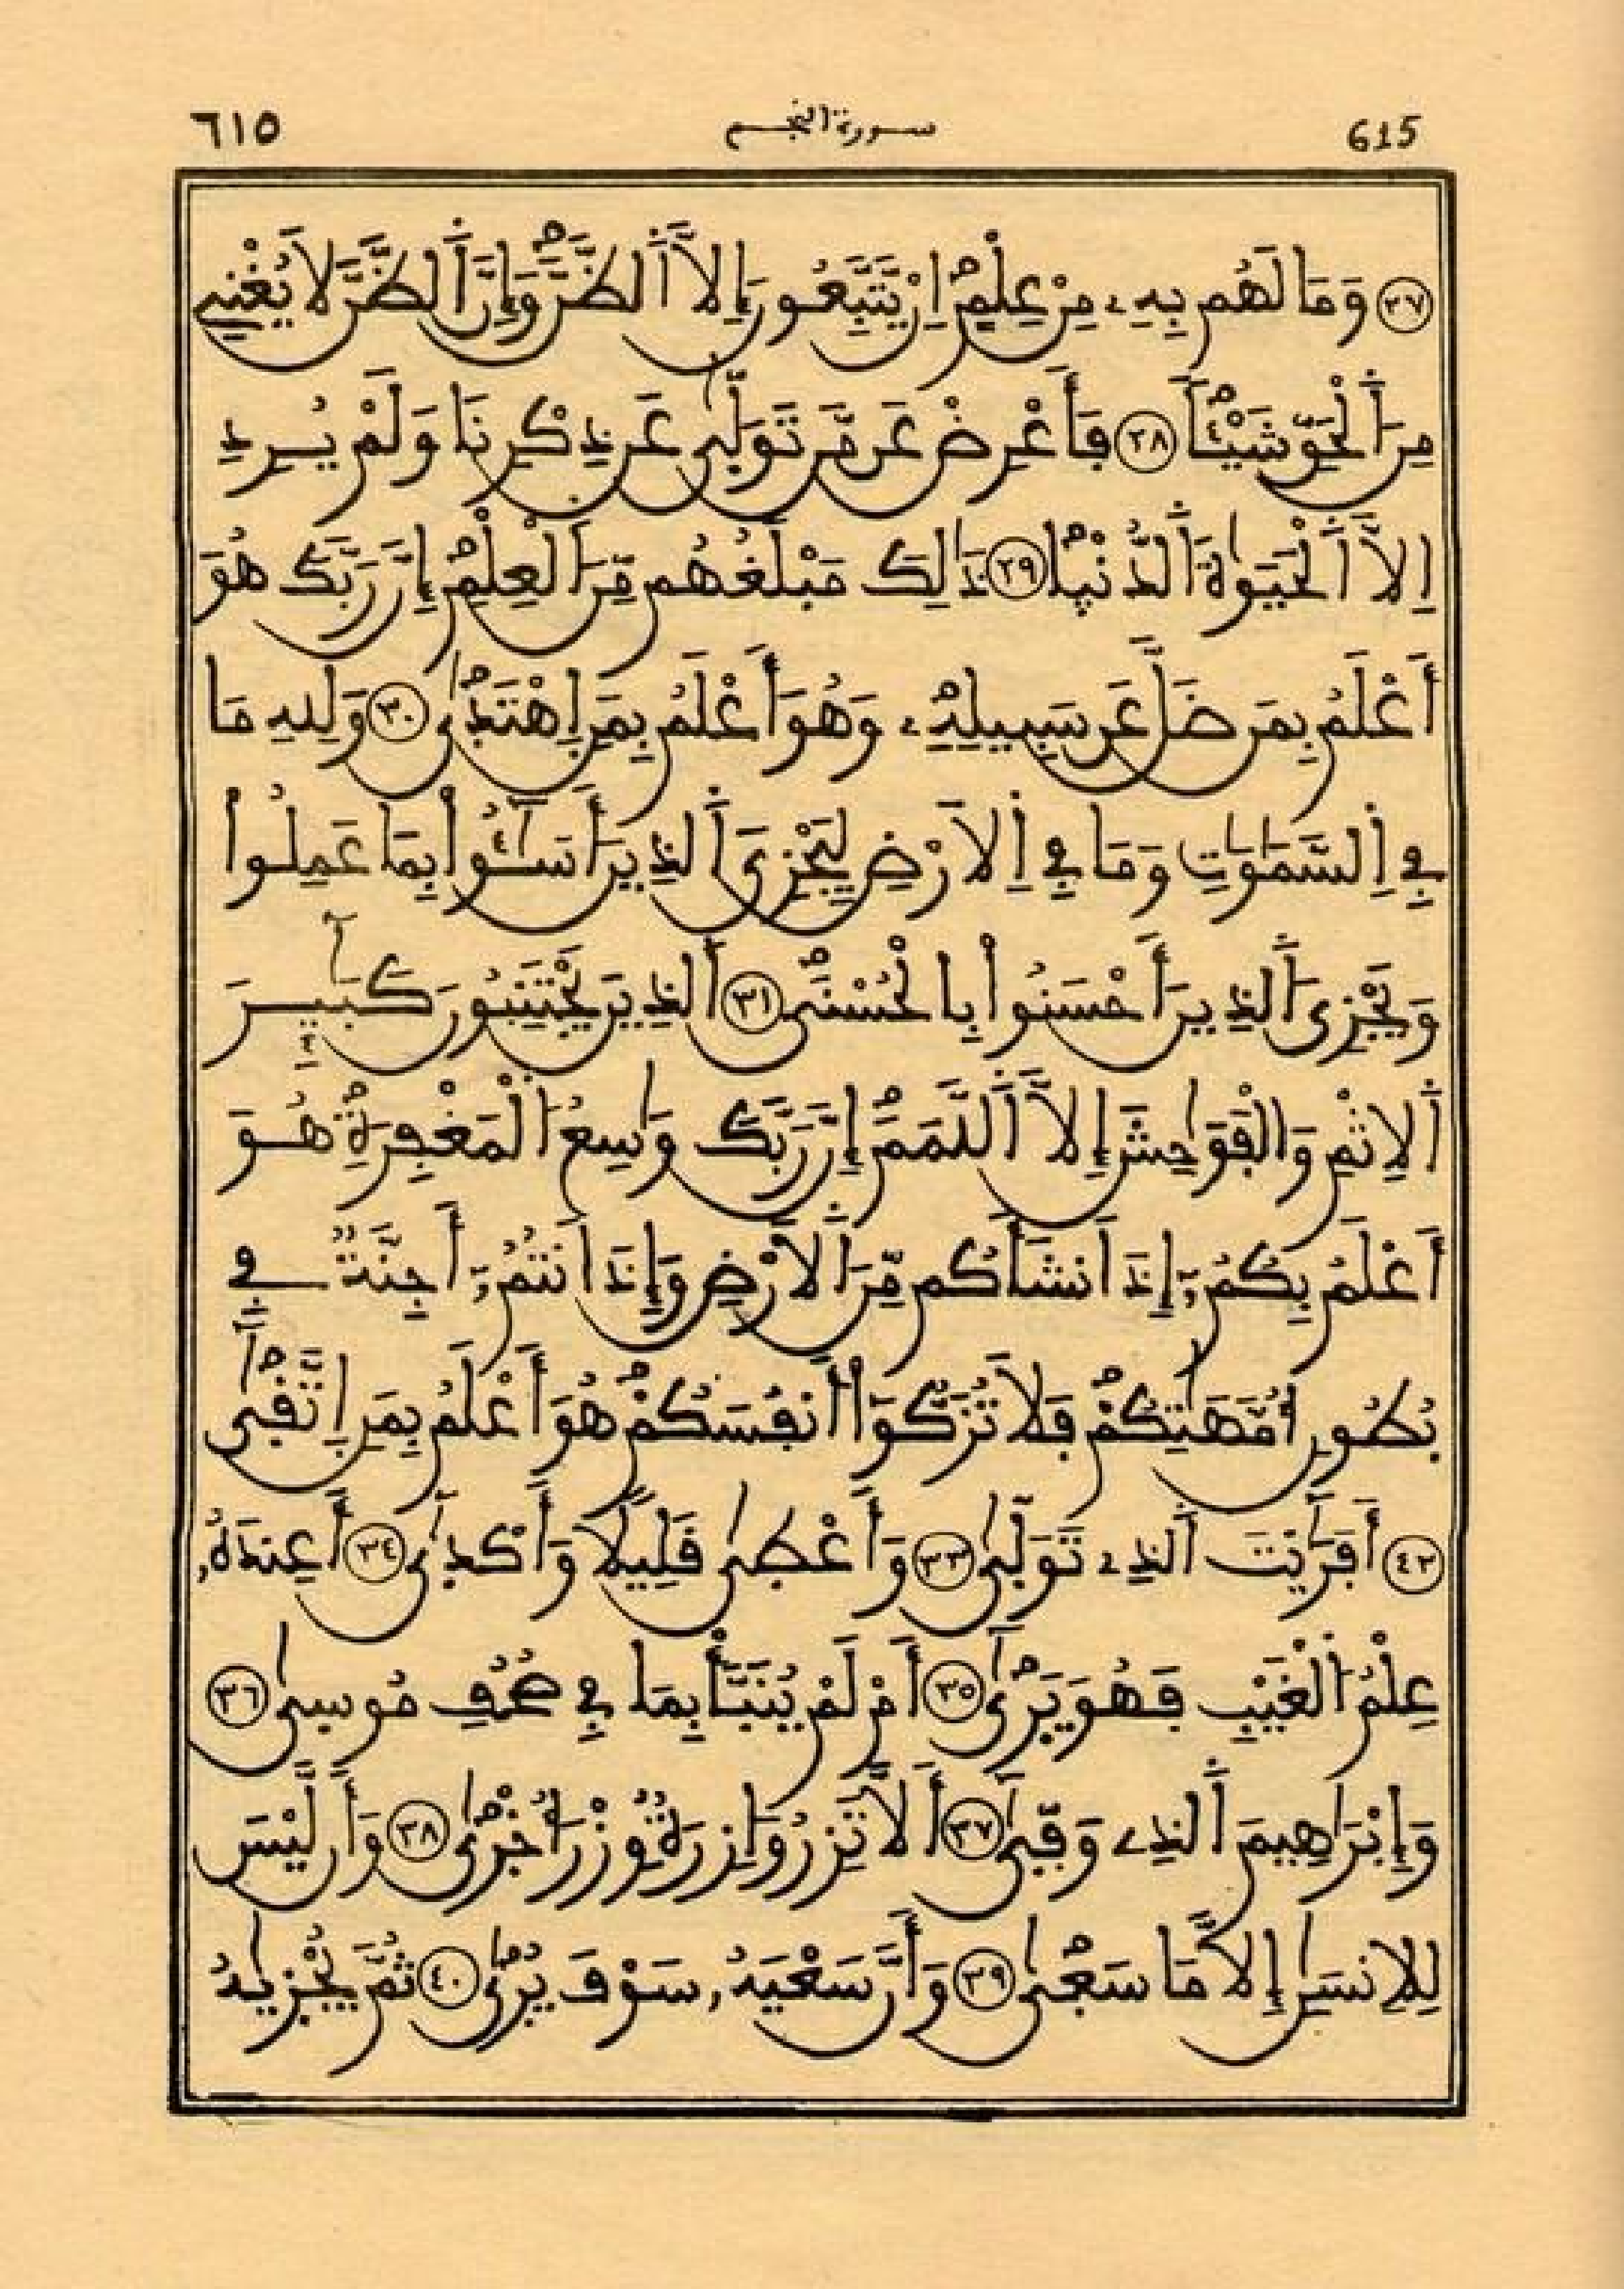 ٦١٥ سورة النجم 615
٢٧ وَمَا لَهُم بِهِۦ مِنْ عِلْمٍ اِنْ يَّتَّبِعُونَ إِلَّا اَ۬لظَّنَّ وَإِنَّ اَ۬لظَّنَّ لَا يُغْنِے
مِنَ اَ۬لْحَقِّ شَيْـٔاً ٢٨ فَأَعْرِضْ عَن مَّن تَوَلّ۪ىٰ عَن ذِكْرِنَا وَلَمْ يُرِدِ
اِلَّا اَ۬لْحَيَوٰةَ اَ۬لدُّنْي۪ا ٢٩ ذَٰلِكَ مَبْلَغُهُم مِّنَ اَ۬لْعِلْمِ إِنَّ رَبَّكَ هُوَ
أَعْلَمُ بِمَن ضَلَّ عَن سَبِيلِهِۦ وَهُوَ أَعْلَمُ بِمَنِ اِهْتَد۪ىٰ ٣٠ وَلِلهِ مَا
فِے اِ۬لسَّمَٰوَٰتِ وَمَا فِے اِ۬لَارْضِ لِيَجْزِيَ اَ۬لذِينَ أَسَٰٓـُٔواْ بِمَا عَمِلُواْ
وَيَجْزِيَ اَ۬لذِينَ أَحْسَنُواْ بِالْحُسْنَى ٣١ اَ۬لذِينَ يَجْتَنِبُونَ كَبَٰٓئِرَ
اَ۬لِاثْمِ وَالْفَوَٰحِشَ إِلَّا اَ۬للَّمَمَ إِنَّ رَبَّكَ وَٰسِعُ اُ۬لْمَغْفِرَةِ هُوَ
أَعْلَمُ بِكُمُۥٓ إِذَ اَنشَأَكُم مِّنَ اَ۬لَارْضِ وَإِذَ اَنتُمُۥٓ أَجِنَّةٌ فِے
بُطُونِ أُمَّهَٰتِكُمْ فَلَا تُزَكُّوٓاْ أَنفُسَكُمْ هُوَ أَعْلَمُ بِمَنِ اِ۪تَّق۪ىٰٓ
٣٢ أَفَرَٰٓيْتَ اَ۬لذِے تَوَلّ۪ىٰ ٣٣ وَأَعْط۪ىٰ قَلِيلًا وَأَكْد۪ىٰٓ ٣٤ أَعِندَهُۥ
عِلْمُ اُ۬لْغَيْبِ فَهُوَ يَر۪ىٰٓ ٣٥ أَمْ لَمْ يُنَبَّأْ بِمَا فِے صُحُفِ مُوس۪ىٰ ٣٦
وَإِبْرَٰهِيمَ اَ۬لذِے وَفّ۪ىٰٓ ٣٧ أَلَّا تَزِرُ وَازِرَةٌ وِزْرَ أُخْر۪ىٰ ٣٨ وَأَن لَّيْسَ
لِلِانسَٰنِ إِلَّا مَا سَع۪ىٰ ٣٩ وَأَنَّ سَعْيَهُۥ سَوْفَ يُر۪ىٰ ٤٠ ثُمَّ يُجْز۪يٰهُ